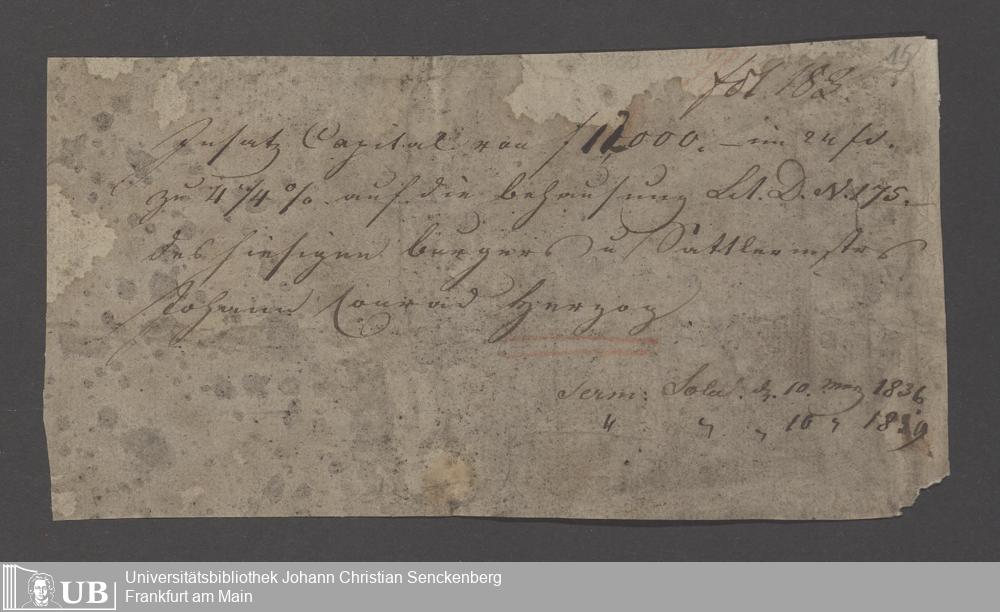 15
fol 183.
Insatz Capital von f 12000. – im 24 fl.
zu 4 1/4 % auf die Behausung Lit. D. N. 175.
des hiesigen Burgers u Sattlermstrs
Johann Conrad Herzog
Term: Solut. d. 10. May 1836
" " " 10 " 1839
UB
Universitätsbibliothek Johann Christian Senckenberg
Frankfurt am Main